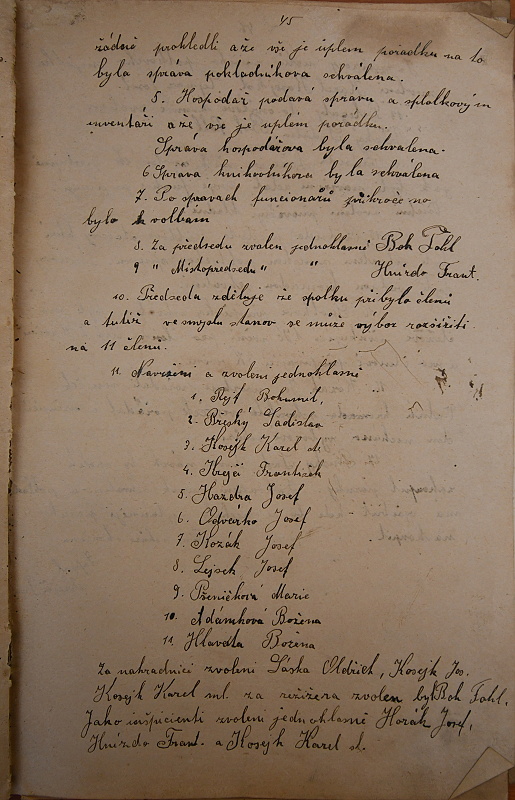 45
řádně prohledli a že vše je úplem pořadku na to
byla správa pokladníkova schválena.
5. Hospodář podavá správu a spolkovým
inventáři a že vše je uplém pořádku.
Sprava hospodářova byla schvalena.
6 Sprava knihovníkova byla schválena
7. Po správach funcionářů přikročeno
bylo k volbam
8. Za předsedu zvolen jednohlasně Boh Fohl
9 " Mistopředsedu " " Hnízdo Frant.
10. Předseda zděluje že spolku přibylo členů
a tudíž ve smyslu stanov se může výbor rozšířiti
na 11 členů.
11. Navrženi a zvoleni jednohlasně
1. Ryf Bohumil,
2. Břeský Ladislav
3. Kosejk Karel st.
4. Krejčí František
5. Hazdra Josef
6. Odvarko Josef
7. Kozák Josef
8. Lejsek Josef
9. Pšeničková Marie
10. Adámková Božena
11. Hlavatá Božena
Za nahradníci zvoleni Láska Oldřich, Kosejk Jos.
Kosejk Karel ml. za režižéra zvolen byl Boh Fohl.
Jako inšpicienti zvoleni jednohlasně Horák Josef,
Hnízdo Frant. a Kosejk Karel st.